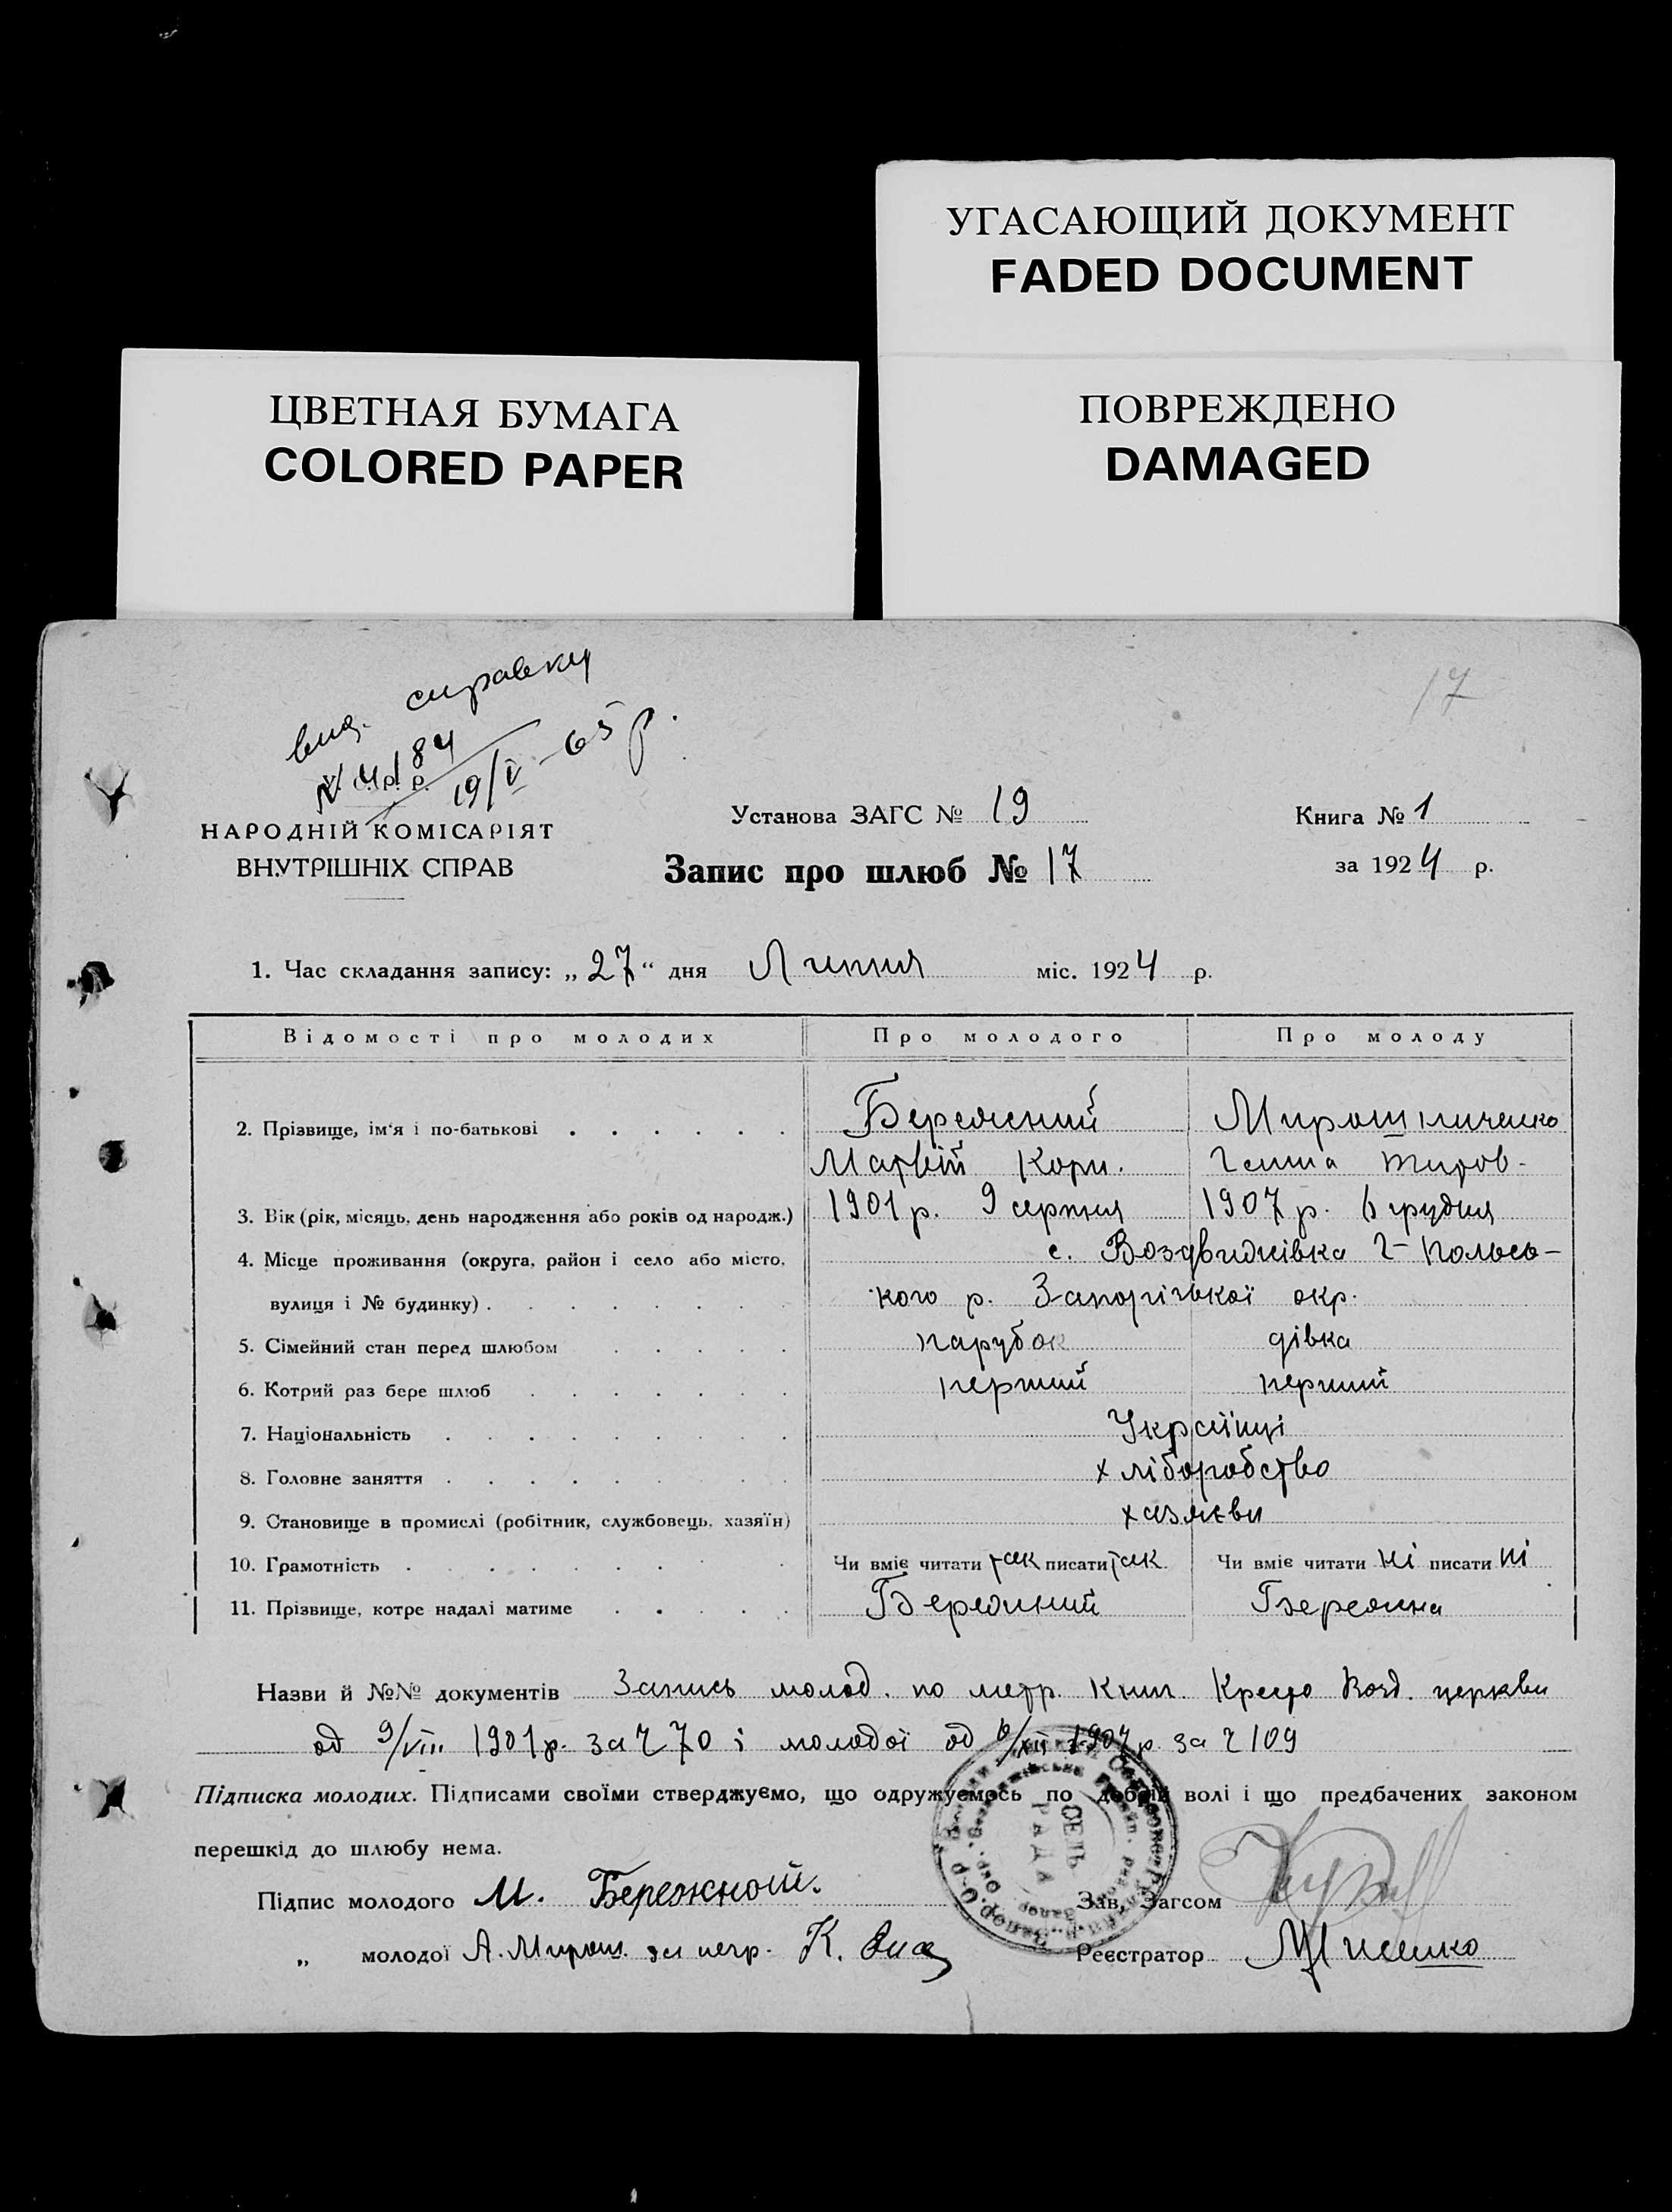 УГАСАЮЩИЙ ДОКУМЕНТ
FADED DOCUMENT
ЦВЕТНАЯ БУМАГА
COLORED PAPER
ПОВРЕЖДЕНО
DAMAGED
вид. справку
84
19/V - 65 р.
17
НАРОДНІЙ КОМІСАРІЯТ
ВНУТРІШНІХ СПРАВ
Установа ЗАГС № 19
Книга № 1
Запис про шлюб № 17
за 1924 р.
1. Час складання запису: „27“ дня Липня міс. 1924 р.
Відомості про молодих Про молодого Про молоду
2. Прізвище, ім‘я і по-батькові Бережний Мирошниченко
Матвій Корн. Ганна Титов-
3. Вік (рік, місяць, день народження або років од народж.) 1901 р. 9 серпня 1907 р. 6 грудня
4. Місце проживання (округа, район і село або місто, с. Воздвижівка Г-Польсь-
вулиця і № будинку) кого р. Запорізької окр.
5. Сімейний стан перед шлюбом парубок дівка
6. Котрий раз бере шлюб перший перший
7. Національність Українці
8. Головне заняття хліборобство
9. Становище в промислі (робітник, службовець, хазяїн) хазяєви
10. Грамотність Чи вміє читати так писати так Чи вміє читати ні писати ні
11. Прізвище, котре надалі матиме Бережний Бережна
Назви й №№ документів Запись молод. по метр. книг. Кресто Возд. церкви
од 9/VIII 1901 р. за Ч 70 і молодої од 6/XII 1907 р. за Ч 109
Підписка молодих. Підписами своїми стверджуємо, що одружуємось по добрій волі і що предбачених законом
перешкід до шлюбу нема.
СЕЛЬ
РАДА
Підпис молодого М. Бережной.
Зав. Загсом
„ молодої А. Мирош. за негр. К.
Реєстратор